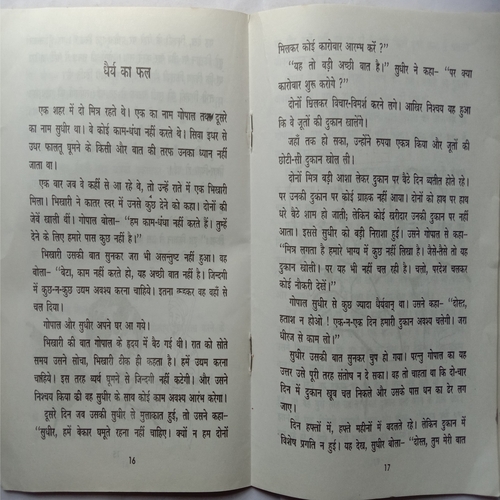 धैर्य का फल
एक शहर में दो मित्र रहते थे। एक का नाम गोपाल तथा दूसरे
का नाम सुधीर था। वे कोई काम-धंधा नहीं करते थे। सिवा इधर से
उधर फालतू घूमने के किसी और बात की तरफ उनका ध्यान नहीं
जाता था।
एक बार जब वे कहीं से आ रहे थे, तो उन्हें रास्ते में एक भिखारी
मिला। भिखारी ने कातर स्वर में उनसे कुछ देने को कहा। दोनों की
जेबें खाली थीं। गोपाल बोला- "हम काम-धंधा नहीं करते हैं। तुम्हें
देने के लिए हमारे पास कुछ नहीं है।"
भिखारी उसकी बात सुनकर जरा भी असन्तुष्ट नहीं हुआ। वह
बोला- "बेटा, काम नहीं करते हो, यह अच्छी बात नहीं है। जिन्दगी
में कुछ-न-कुछ उद्यम अवश्य करना चाहिये। इतना कहकर वह वहाँ से
चल दिया।
गोपाल और सुधीर अपने घर आ गये।
भिखारी की बात गोपाल के हृदय में बैठ गई थी। रात को सोते
समय उसने सोचा, भिखारी ठीक ही कहता है। हमें उद्यम करना
चाहिये। इस तरह व्यर्थ घूमने से जिन्दगी नहीं कटेगी। और उसने
निश्चय किया की वह सुधीर के साथ कोई काम अवश्य आरंभ करेगा।
दूसरे दिन जब उसकी सुधीर से मुलाकात हुई, तो उसने कहा-
"सुधीर, हमें बेकार घूमते रहना नहीं चाहिए। क्यों न हम दोनों
16
मिलकर कोई कारोबार आरम्भ करें ?"
"यह तो बड़ी अच्छी बात है।" सुधीर ने कहा- "पर क्या
कारोबार शुरू करोगे ?"
दोनों मिलकर विचार-विमर्श करने लगे। आखिर निश्चय यह हुआ
कि वे जूतों की दुकान खोलेंगे।
जहाँ तक हो सका, उन्होंने रुपया एकत्र किया और जूतों की
छोटी-सी दुकान खोल ली।
दोनों मित्र बड़ी आशा लेकर दुकान पर बैठे दिन व्यतीत होते रहे।
पर उनकी दुकान पर कोई ग्राहक नहीं आया। दोनों को हाथ पर हाथ
धरे बैठे शाम हो जाती; लेकिन कोई खरीदार उनकी दुकान पर नहीं
आता। इससे सुधीर को बड़ी निराशा हुई। उसने गोपाल से कहा-
"मित्र लगता है हमारे भाग्य में कुछ नहीं लिखा है। जैसे-तैसे तो यह
दुकान खोली। पर यह भी नहीं चल रही है। चलो, परदेश चलकर
कोई नौकरी देखें।"
गोपाल सुधीर से कुछ ज्यादा धैर्यवान था। उसने कहा- "दोस्त,
हताश न होओ ! एक-न-एक दिन हमारी दुकान अवश्य चलेगी। जरा
धीरज से काम लो।"
सुधीर उसकी बात सुनकर चुप हो गया। परन्तु गोपाल का यह
उत्तर उसे पूरी तरह संतोष न दे सका। वह तो चाहता था कि दो-चार
दिन में दुकान खूब चल निकले और उसके पास धन का ढेर लग
जाए।
दिन हफ्तों में, हफ्ते महीनों में बदलते रहे। लेकिन दुकान में
विशेष प्रगति न हुई। यह देख, सुधीर बोला- "दोस्त, तुम मेरी बात
17